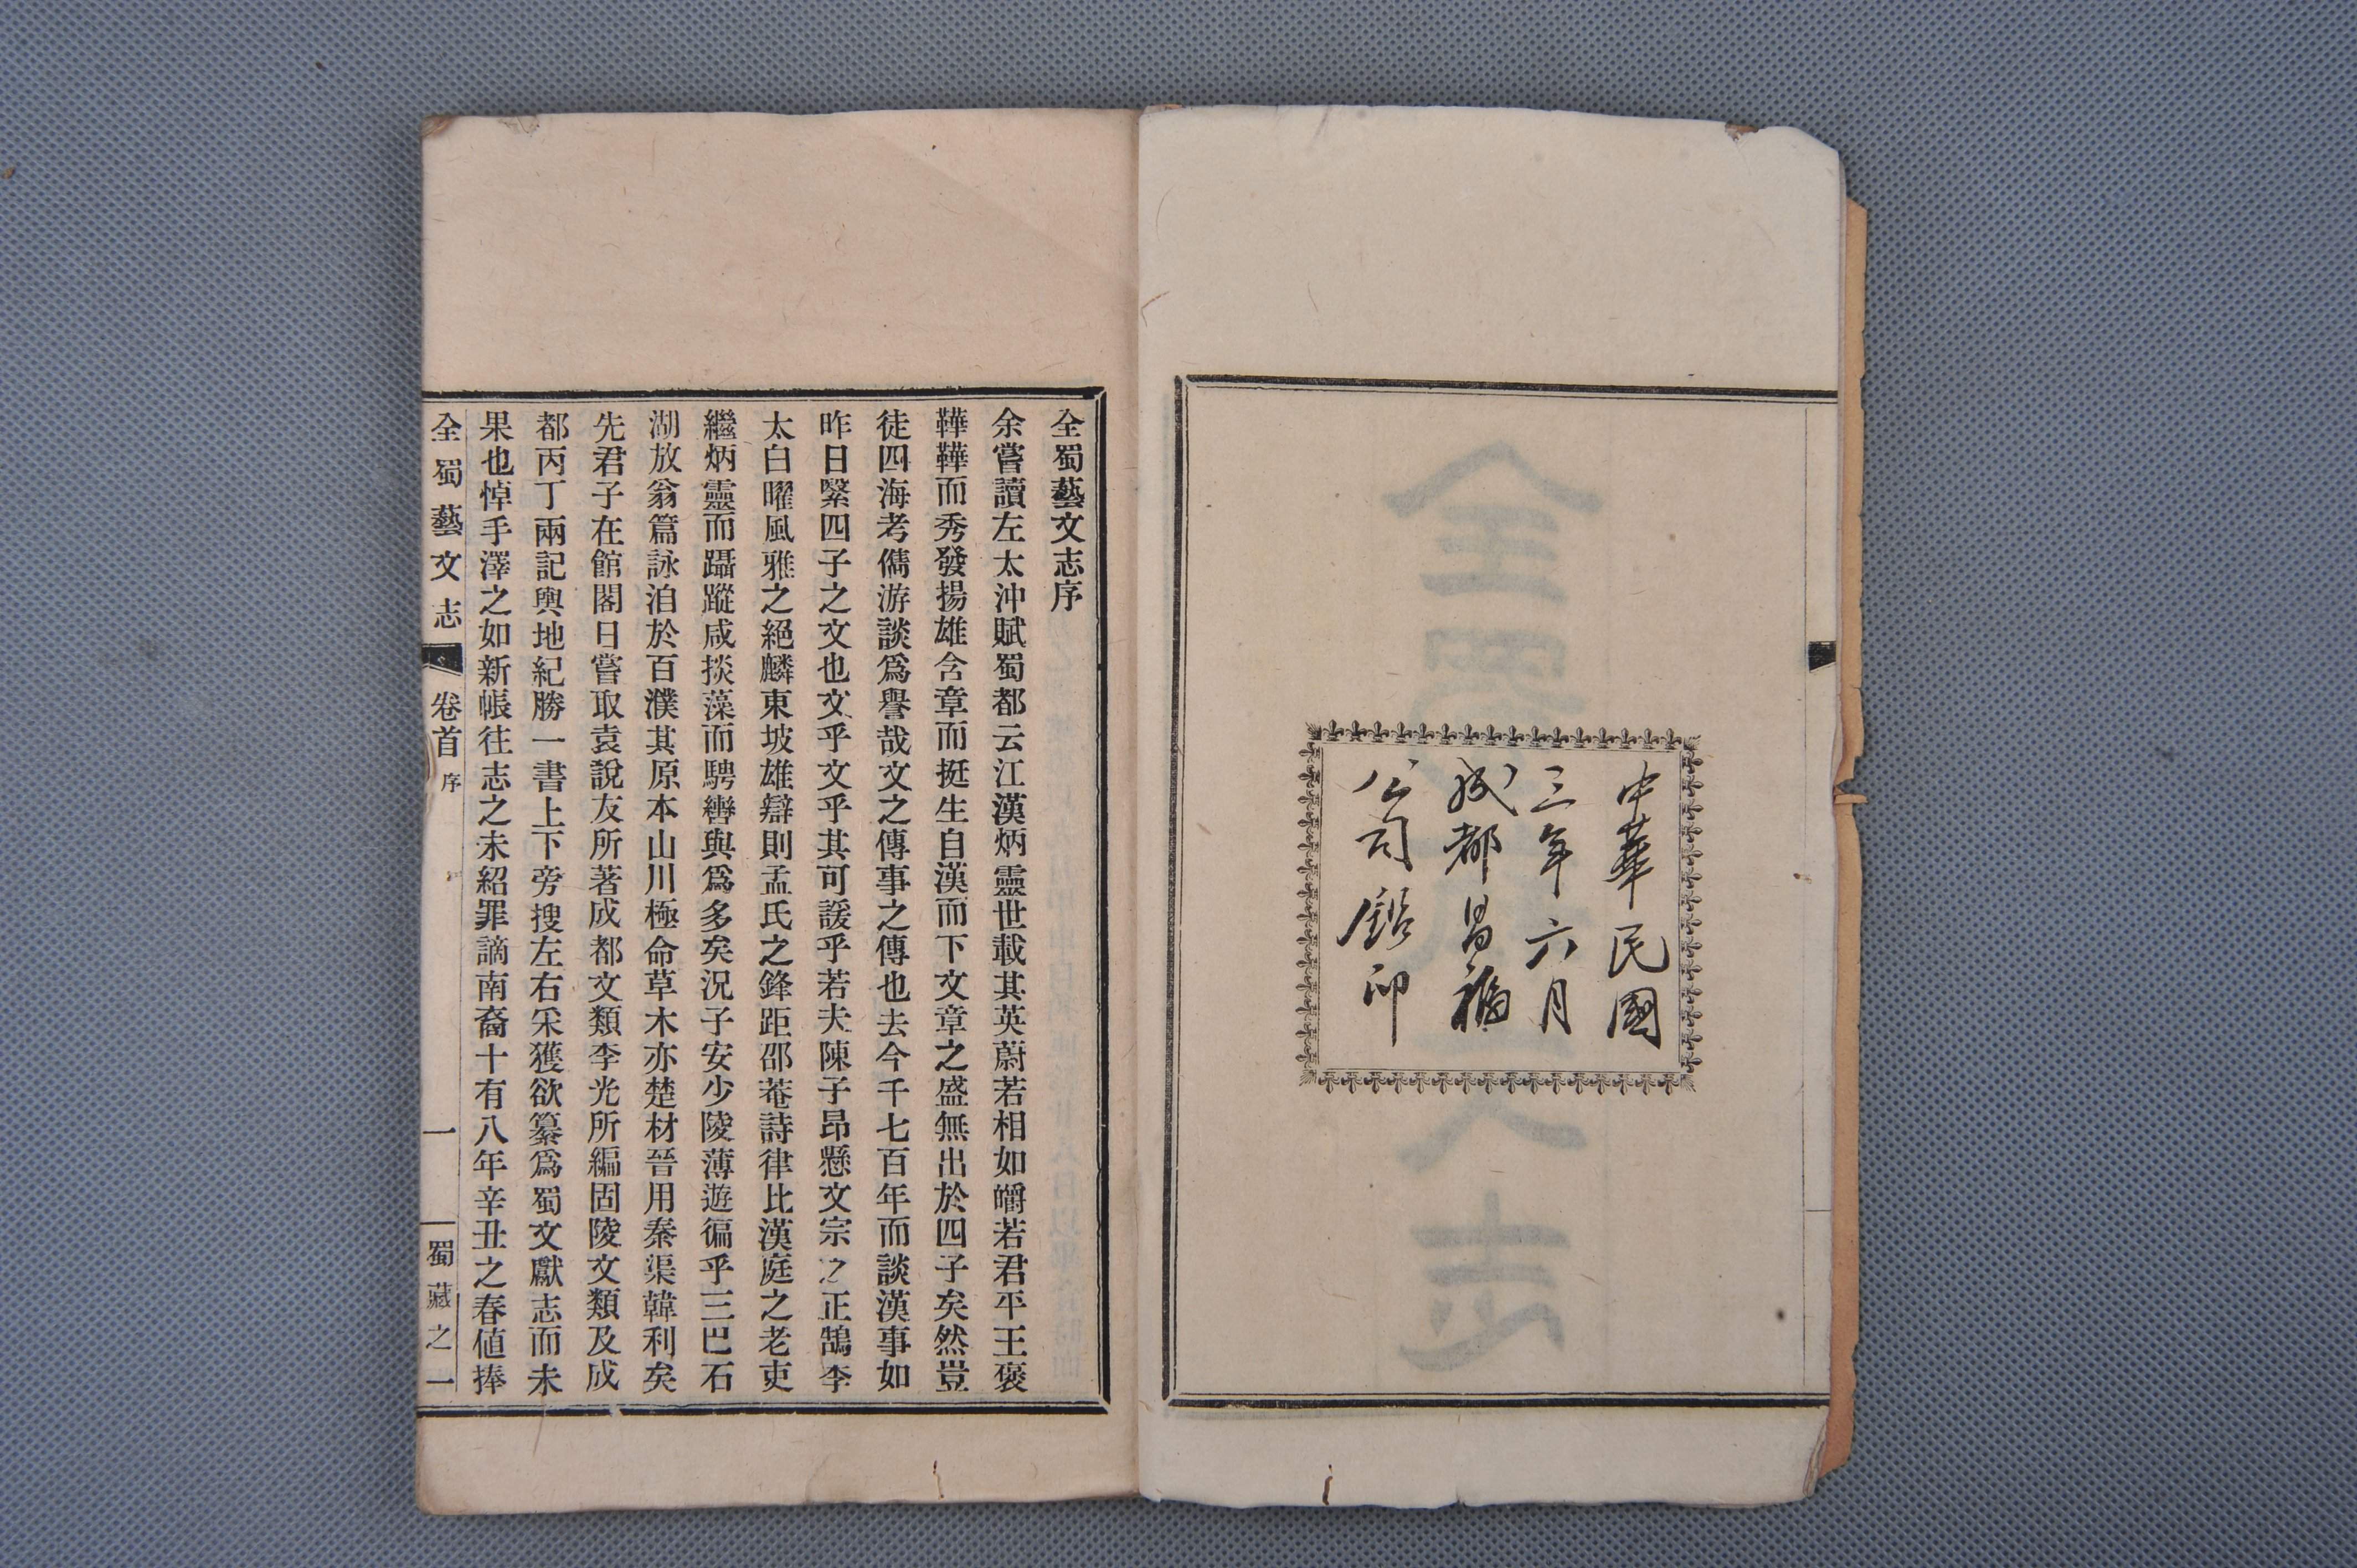 中華民國
三年六月
成都昌福
公司鉛印
全蜀藝文志序
余嘗讀左太沖賦蜀都云江漢炳靈世載其英蔚若相如皭若君平王褒
韡韡而秀發揚雄含章而挺生自漢而下文章之盛無出於四子矣然豈
徒四海考儁游談爲譽哉文之傳事之傳也去今千七百年而談漢事如
昨日緊四子之文也文乎文乎其可諼乎若夫陳子昂懸文宗之正鵠李
太白曜風雅之絕麟東坡雄辯則孟氏之鋒距邵菴詩律比漢庭之老吏
繼炳靈而躡蹤咸掞藻而騁轡與爲多矣況子安少陵薄遊徧乎三巴石
湖放翁篇詠洎於百濮其原本山川極命草木亦楚材晉用秦渠韓利矣
先君子在館閣日嘗取袁說友所著成都文類李光所編固陵文類及成
都丙丁兩記輿地紀勝一書上下旁搜左右采獲欲纂爲蜀文獻志而未
果也悼手澤之如新悵往志之未紹罪謫南裔十有八年辛丑之春値捧
全蜀藝文志 卷首 序 一 蜀藏之一
全蜀藝文志